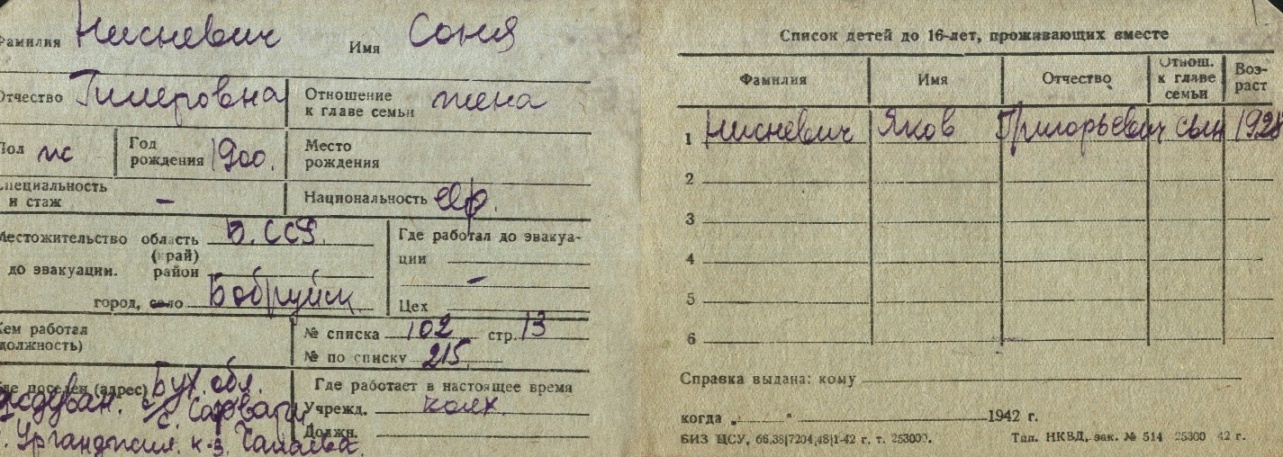 Фамилия Нисневич Имя Соня
Отчество Гилеровна Отношение к главе семьи жена
Пол ж Год рождения 1900. Место рождения
Специальность и стаж – Национальность евр.
Местожительство область Б.ССР. Где работал до эвакуа-
(край) ции
до эвакуации. район –
город, село Бобруйск Цех
Кем работал № списка 102 стр. 13
(должность) № по списку 215
Где поселен (адрес) Бух. обл. Где работает в настоящее время
Гиждуван. с/с. Учрежд. колх.
Должн.
к-з. Чапаева.
Список детей до 16-лет, проживающих вместе
Фамилия Имя Отчество Отнош. к главе семьи Воз-раст
1 Нисневич Яков Григорьевич сын 1928
2
3
4
5
6
Справка выдана: кому
когда „ “ 1942 г.
БИЗ ЦСУ, 66,38|7204,48|1-42 г. т. 253000. Тип. НКВД, зак. № 514 25300 42 г.